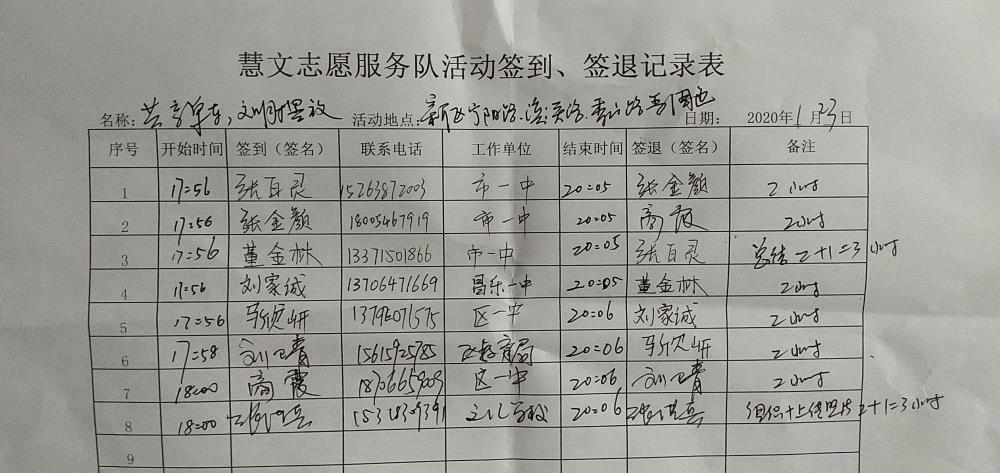 慧文志愿服务队活动签到、签退记录表
名称: 共享单车,文明摆放 活动地点: 日期: 2020年1月23日
序号 开始时间 签到（签名） 联系电话 工作单位 结束时间 签退（签名） 备注
1 17:56 张百灵 15263872003 市一中 20:05 张金颜 2小时
2 17:56 张金颜 18005467919 市一中 20:05 高霞 2小时
3 17:56 董金林 13371501866 市一中 20:05 张百灵 总结 2+1=3小时
4 17:56 刘家诚 13706471669 昌乐一中 20:05 董金林 2小时
5 17:56 马欣妍 区一中 20:06 刘家诚 2小时
6 17:58 刘卫青 15615925785 20:06 马欣妍 2小时
7 18:00 高霞 区一中 20:06 刘卫青 2小时
8 18:00 20:06 组织+上传照片 2+1=3小时
9